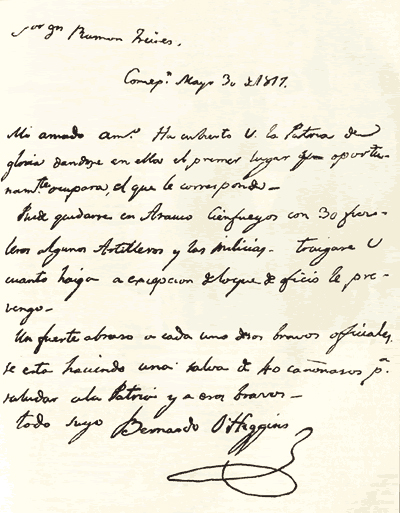 Sor gn Ramon Freires.
Concepn Mayo 30 de 1817.
Mi amado amo Ha cubierto U. la Patria de
gloria dandose en ella el primer lugar que oportu-
namte ocupara, el que le corresponde_
Puede quedarse en Arauco Cienfuegos con 30 fusi-
leros algunos Artilleros y las Milicias_ traigase U
cuanto haiga a excepcion de loque de oficio le pre-
vengo_
Un fuerte abraso a cada uno de sos bravos oficiales.
se esta haciendo una salva de 40 cañonasos pa
saludar ala Patria y a esos bravos_
todo suyo Bernardo O'Higgins